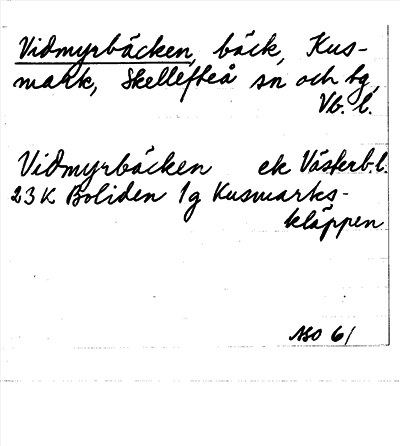 Vidmyrbäcken, bäck, Kus-
mark, Skellefteå sn och tg,
Vb. l.
Vidmyrbäcken ek Västerb. l.
23 K Boliden 1g Kusmarks-
kläppen
NSO 61